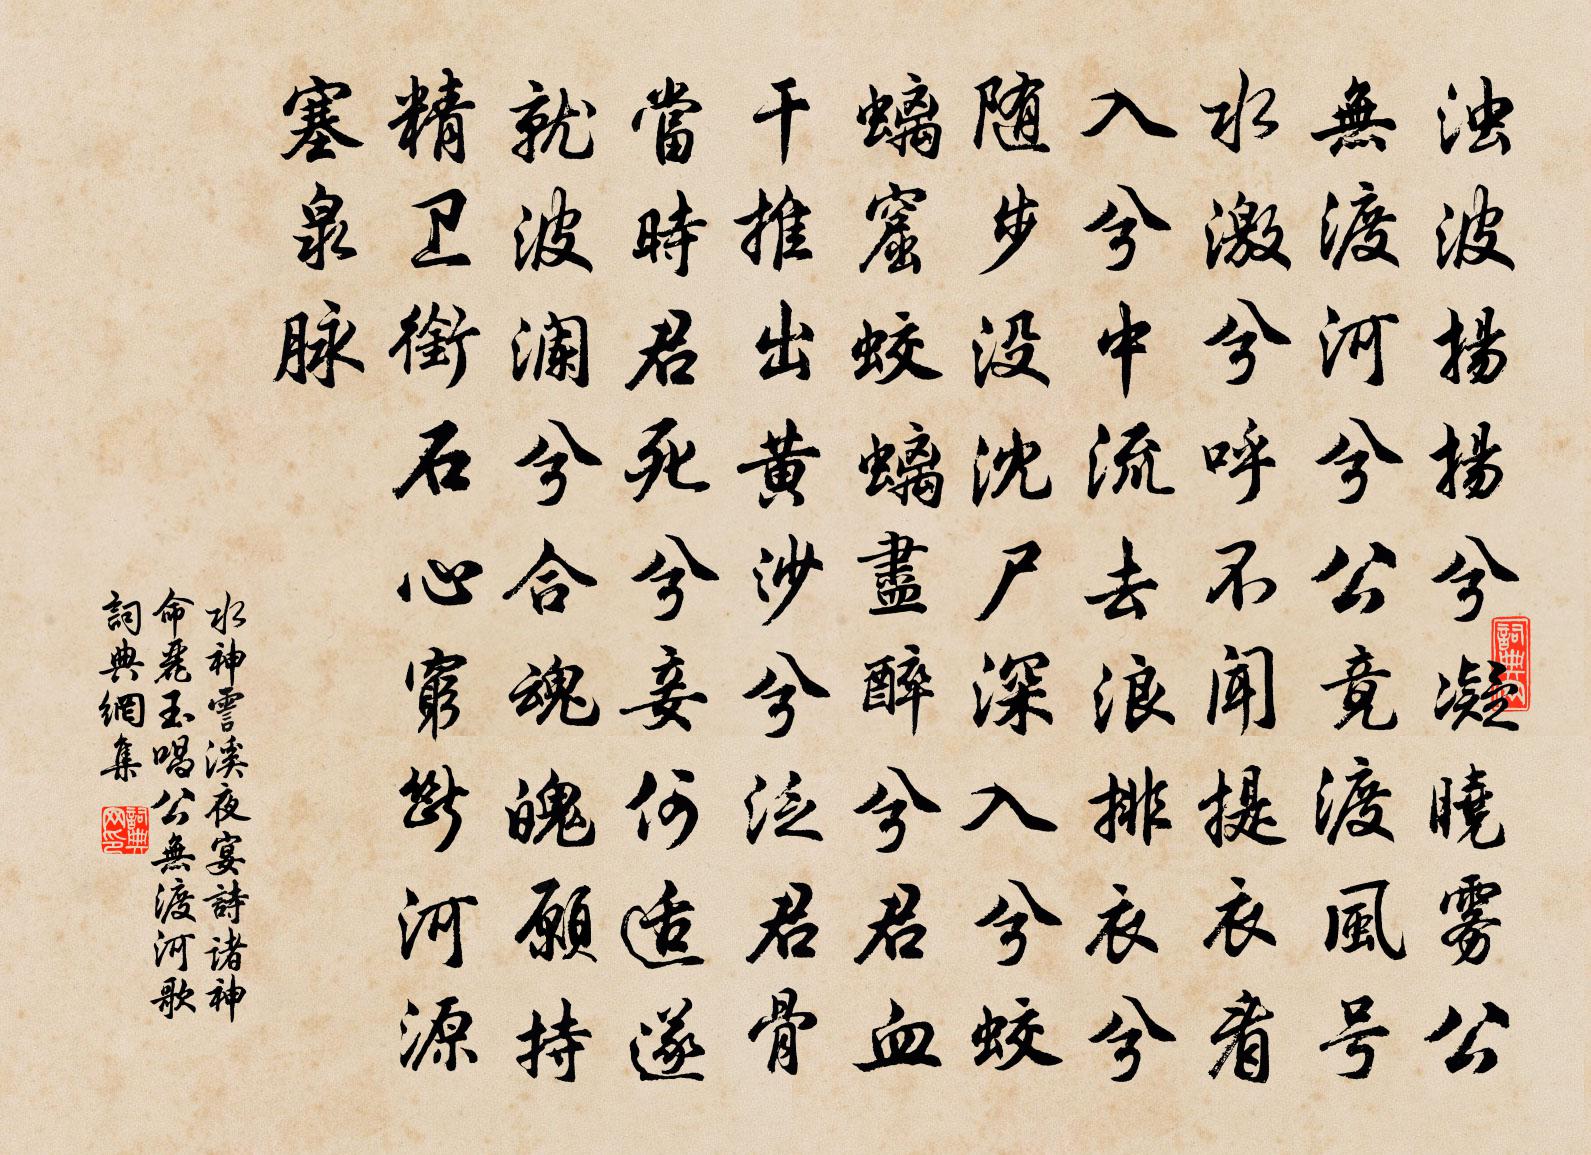 浊波揚揚兮凝曉雾公
無渡河兮公竟渡風号
水激兮呼不闻提衣看
入兮中流去浪排衣兮
随步没沈尸深入兮蛟
螭窟蛟螭盡醉兮君血
干推出黄沙兮泛君骨
當時君死兮妾何适遂
就波澜兮合魂魄願持
精卫銜石心窮斷河源
塞泉脉
水神雪溪夜宴詩诸神
命麗玉唱公無渡河歌
詞典網集
詞典